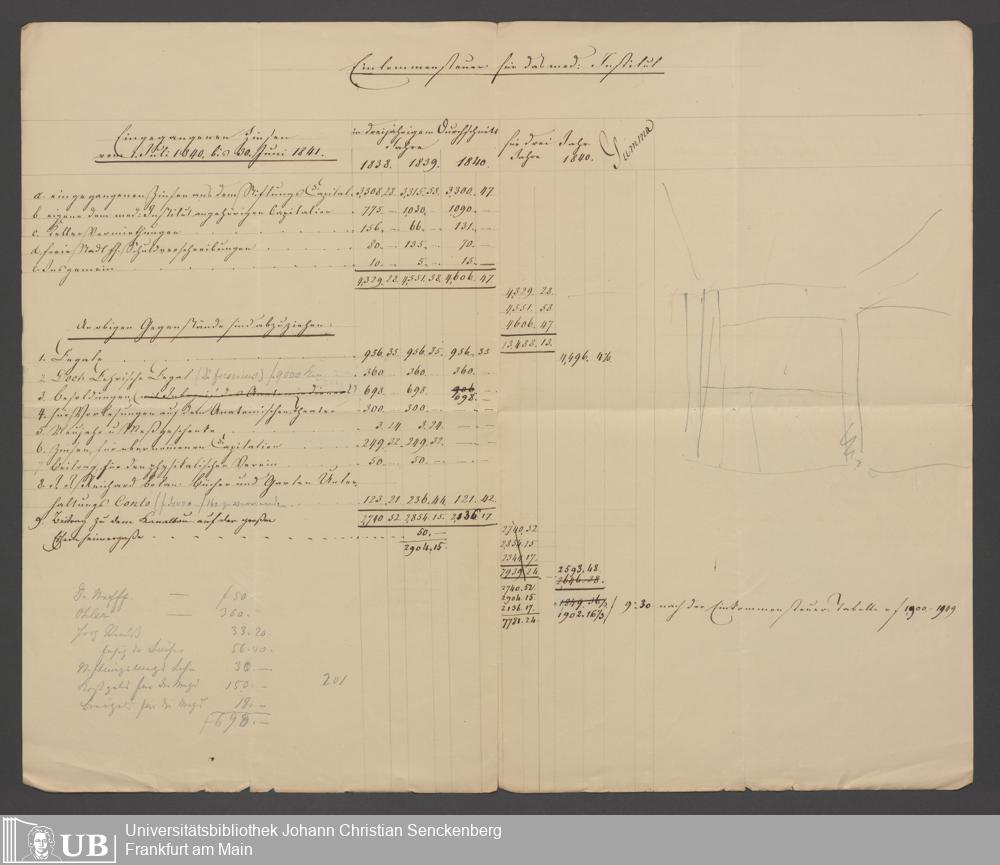 Einkommensteuer für das med: Institut
Eingegangenen Zinsen
vom 1. Juli 1840. bis 30. Juni 1841.
in dreijährigem Durchschnitt
Jahre
1838. 1839. 1840.
für drei Jahre
Jahr 1840.
Summa
a. eingegangenen Zinsen aus dem Stiftungs Capital. 3,308.23. 3,315.58. 3,300.47
b. eigene dem med: Institut angehörigen Capitalien 775.— 1030.— 1090.—
c. Keller Vermiethungen 156.— 66.— 131.—
d. freie Stadt ff. Schuldverschreibungen 80.— 135.— 70.—
e. Insgemein 10.— 5.— 15.—
4,329.23. 4,551.58. 4,606.47
4,329.23.
4551.58.
4606.47
13,488.13.
4,496. 4⅓.
An obigen Gegenstände sind abzuziehen:
1. Legate 956.35. 956.35. 956.35
2. Doct: Lehrische Legat 360.— 360.— 360.—
3. Besoldungen 698. 698. 698.—
4. für Vorlesungen auf dem Anatomischen Theater 300.— 300.— —
5. Neujahr u. Meßgeschenke 3.24. 3.24. —
6. Zinsen für übernommenen Capitalien 249.32. 249.32. —
7. Beitrag für den physikalischen Verein 50.— 50.— —
8. Reichard botan. Bücher und Garten Unter
haltungs Conto 123.21 236.44. 121.42
2740.52. 2,854.15. 2,136.17.
9. Beitrag zu dem Kanalbau auf der großen
Eschenheimergaße 50.—
2904.15.
2740.52.
2854.15.
2344.17.
7939.24.
2740.52.
2904.15.
2136.17.
7781.24.
2593.48
2646.28.
1849.36⅓
1902.16⅓ f 9:30 nach der Einkommensteuer Tabelle v f 1900–1909
f 50.—
Ohler — 360.—
33.20.
56.40.
30.—
Kostgeld für die Magd 150.—
für die Magd 18.—
f 698.—
201
UB
Universitätsbibliothek Johann Christian Senckenberg
Frankfurt am Main